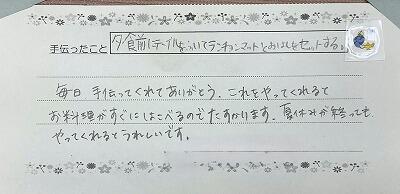 手伝ったこと 夕食前にテーブルをふいてランチョンマットとおはしをセットする。
毎日 手伝ってくれてありがとう。これをやってくれると
お料理がすぐにはこべるのでたすかります。夏休みが終っても
やってくれるとうれしいです。